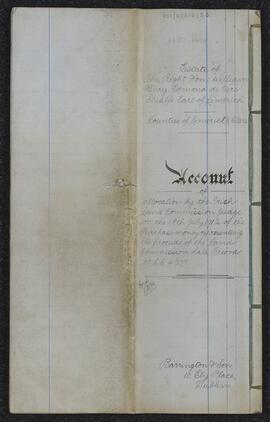 Estate of
The Right Hon. William
Henry Edmond de Vere
Sheaffe Earl of Limerick
Counties of Limerick & Clare
Account
of
allocation by the Irish
Land Commission Judge
on the 19th July 1912 of the
Purchase money representing
the proceeds of the Land
Commission date Record
Barrington & Son
10 Ely Place
Dublin